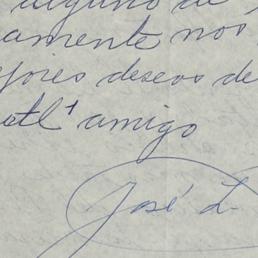 alguno de
amente nos
jores deseos de
atl^t amigo
José L.